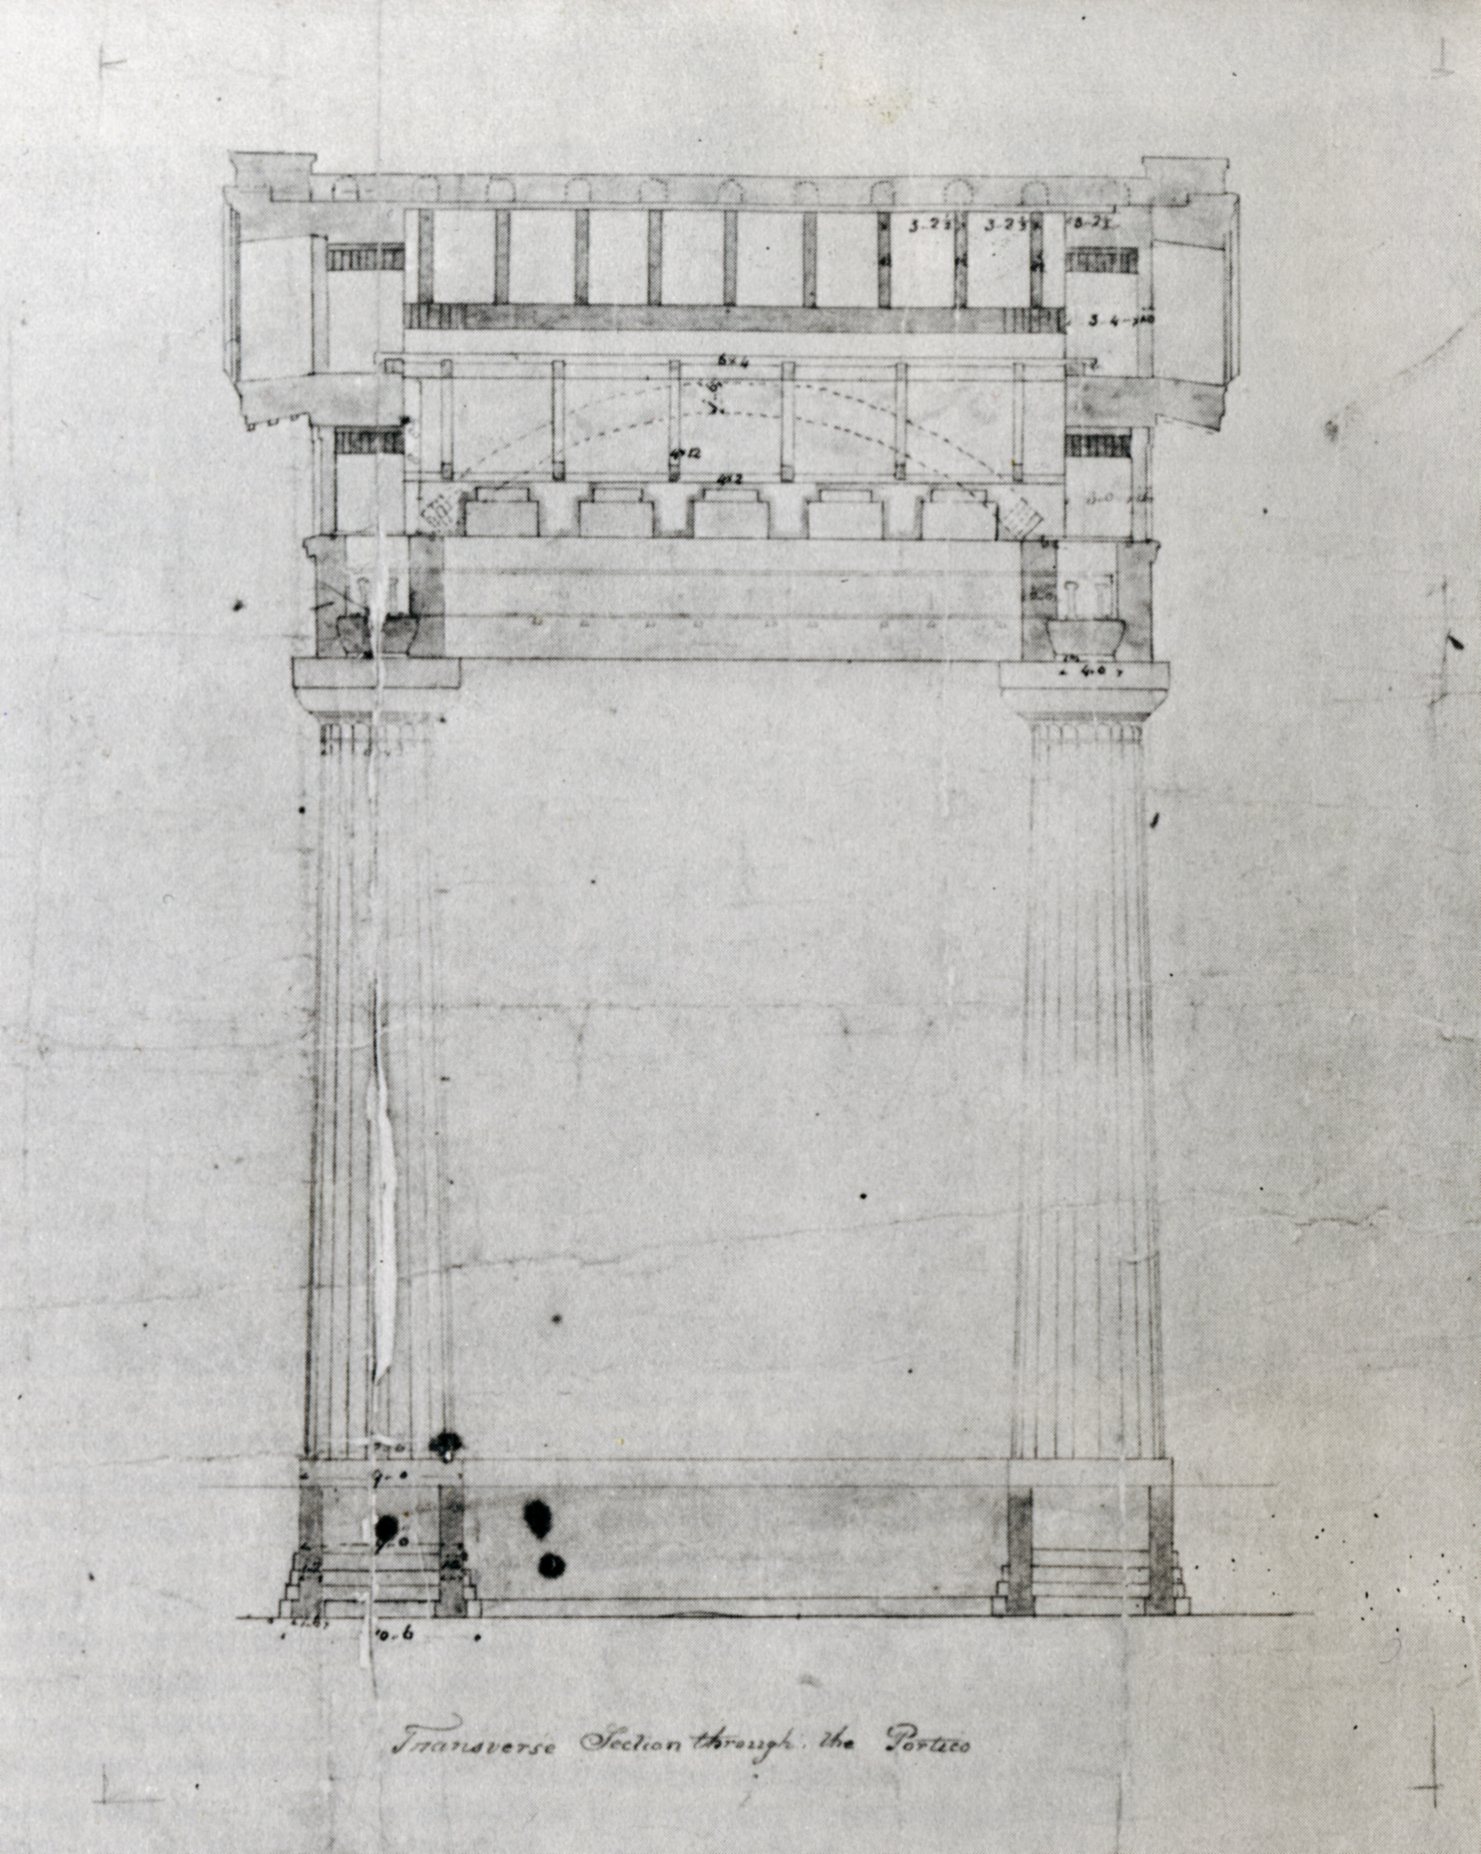 3-2½ 3-2½ 3-2½
3-4
6x4
4x12
4x2
4.0
9-0
10.6
Transverse Section through the Portico